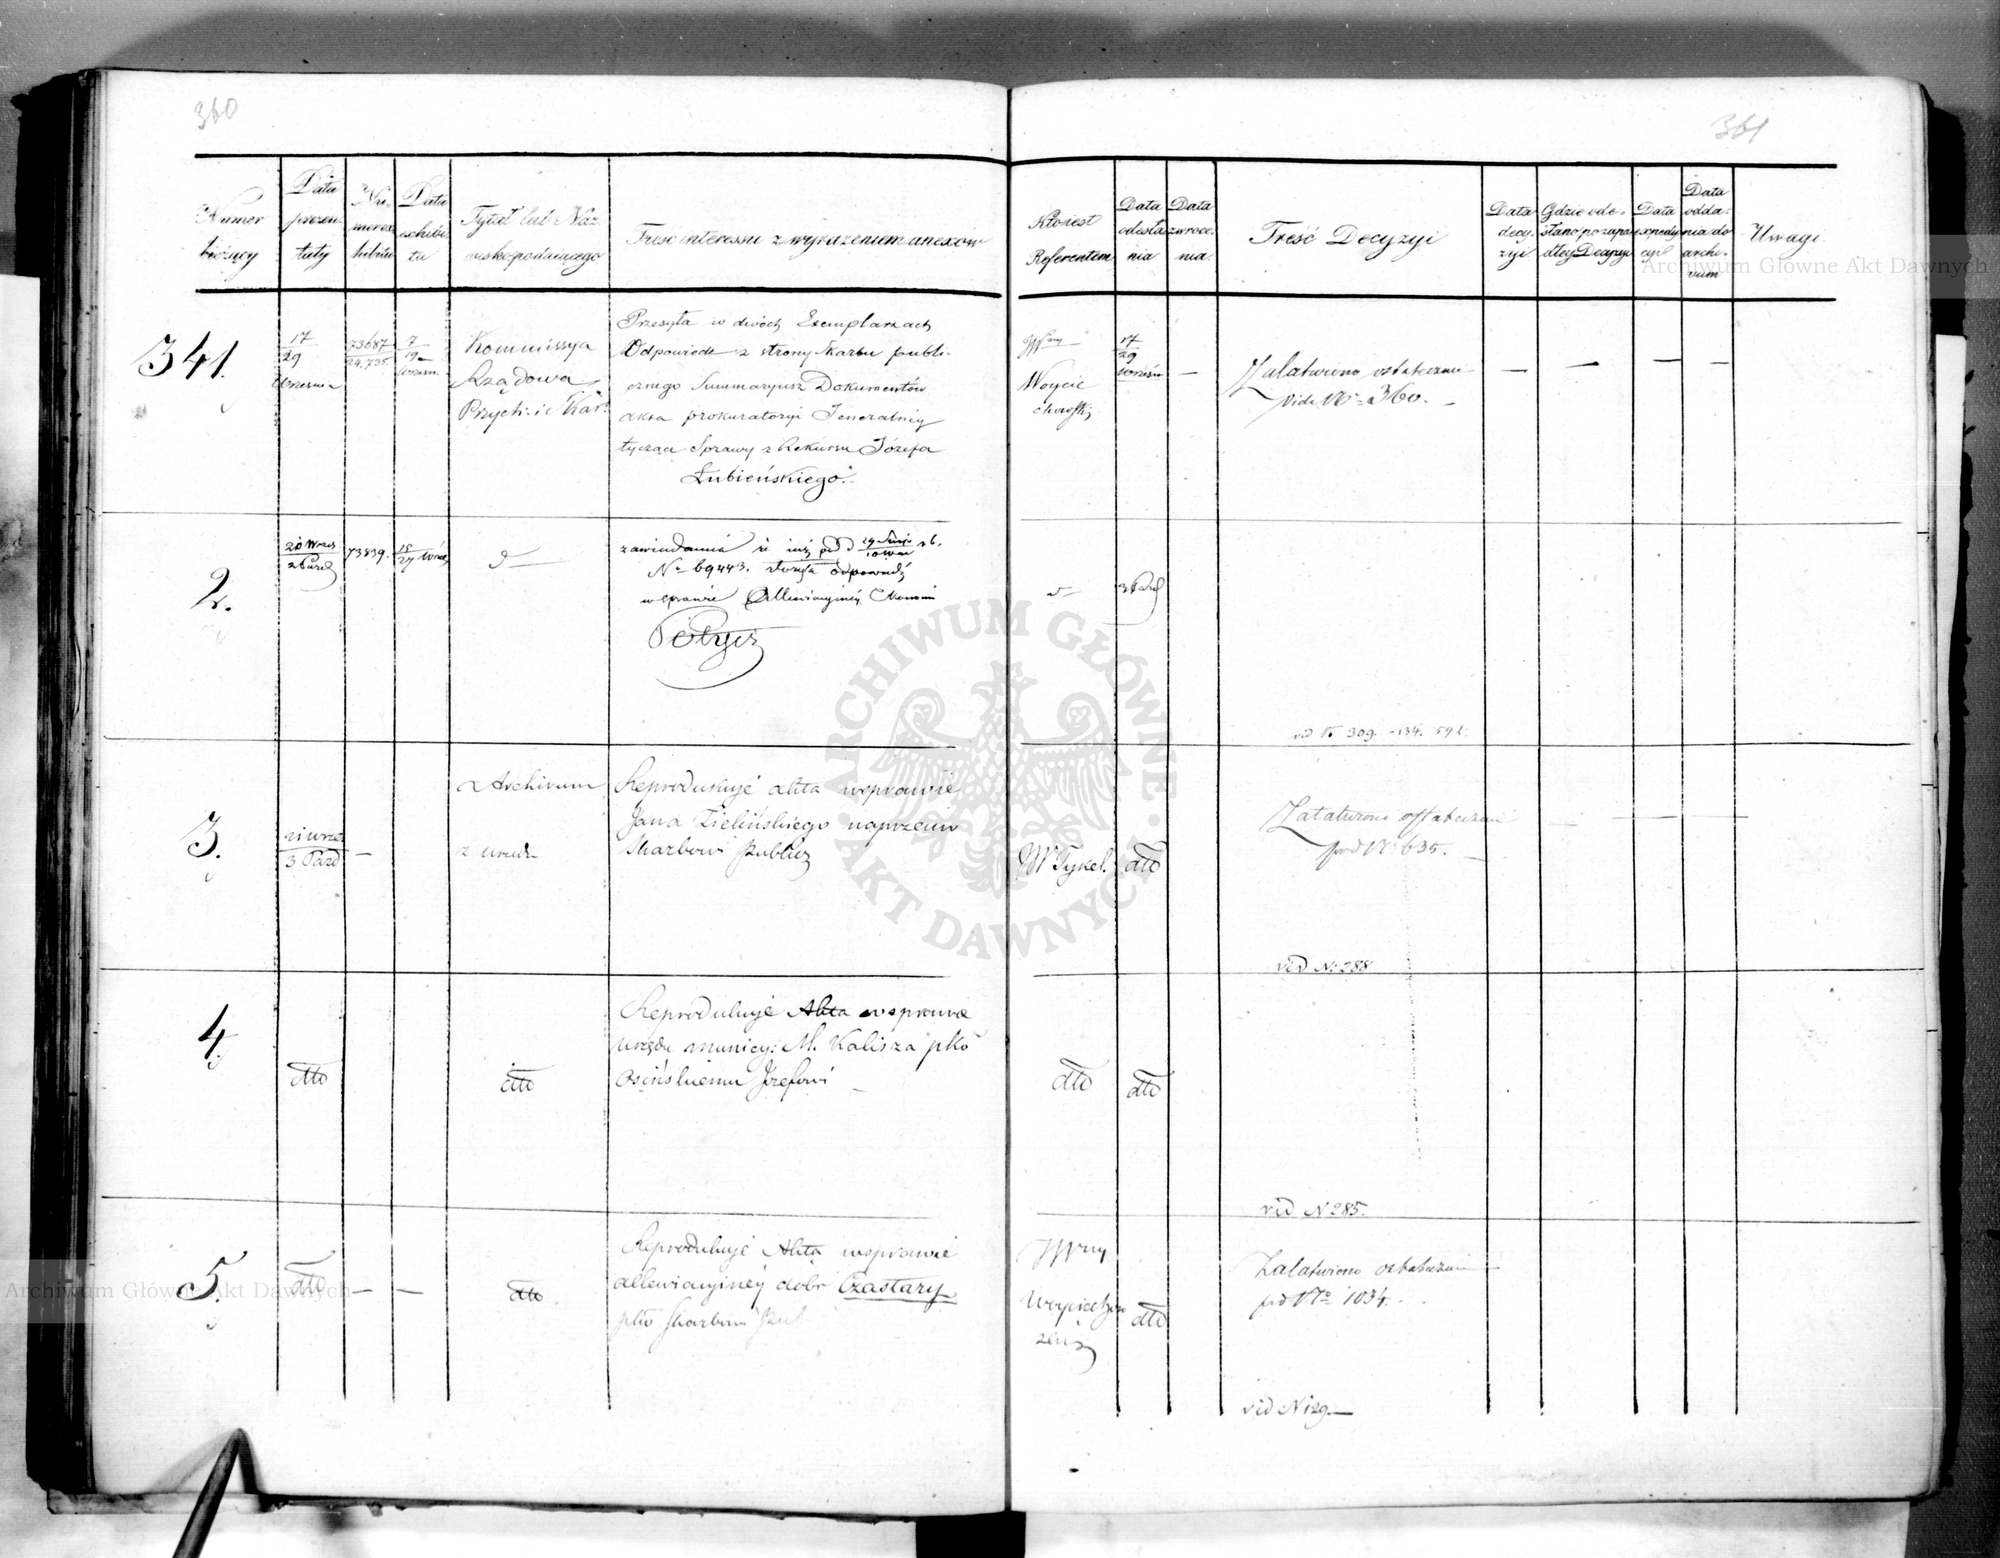 360
361
Numer bieżący
Data prezentaty
Numer exhibitu
Data exhibitu
Tytuł lub Nazwisko podaiącego
Treść interessu z wyrażeniem anexow
Kto iest Referentem
Data odesłania
Data zwrocenia
Treść Decyzyi
Data decyzyi
Gdzie odesłano po zapadłey Decyzyi
Data expedycyi
Data oddania do archivum
Uwagi
341.
17/29
Wrzesnia
73687
24,735.
7/19
Wrzesn
Kommissya
Rządowa
Przych: i Skar:
Przesyła w dwóch Exemplarzach
Odpowiedz z strony Skarbu publi-
cznego Summaryusz Dokumentów
akta prokuratoryi Jeneralney
tycząca Sprawy z Rekursu Józefa
Łubieńskiego.
Woycie
chowski
17/29
Wrześn
Załatwiono ostatecznie
Vide No 360.
2.
73839.
zawiadamia iż iuż pod d
No 69443. złożyła odpowiedź
w sprawie Allewiacyiney Ekonomii
309. - 134. 592.
3.
3 Pazd
Archivum
z urzędu
Reprodukuje akta w sprawie
Jana Zielińskiego naprzeciw
Skarbowi Publicz
W Tykel.
dtto
Załatwiono ostatecznie
pod No 635.
vid N: 288
4.
dtto
dtto
Reprodukuje Akta w sprawie
Urzędu municy: M. Kalisza pko
Osińskiemu Józefowi
dtto
dtto
vid N 285.
5.
dtto
dtto
Reprodukuje Akta w sprawie
allewiacyiney dobr Czastary
pko Skarbowi Pub
dtto
Załatwiono ostatecznie
pod No 1034.
vid N 129.
Archiwum Główne Akt Dawnych
ARCHIWUM GŁÓWNE AKT DAWNYCH
Archiwum Główne Akt Dawnych